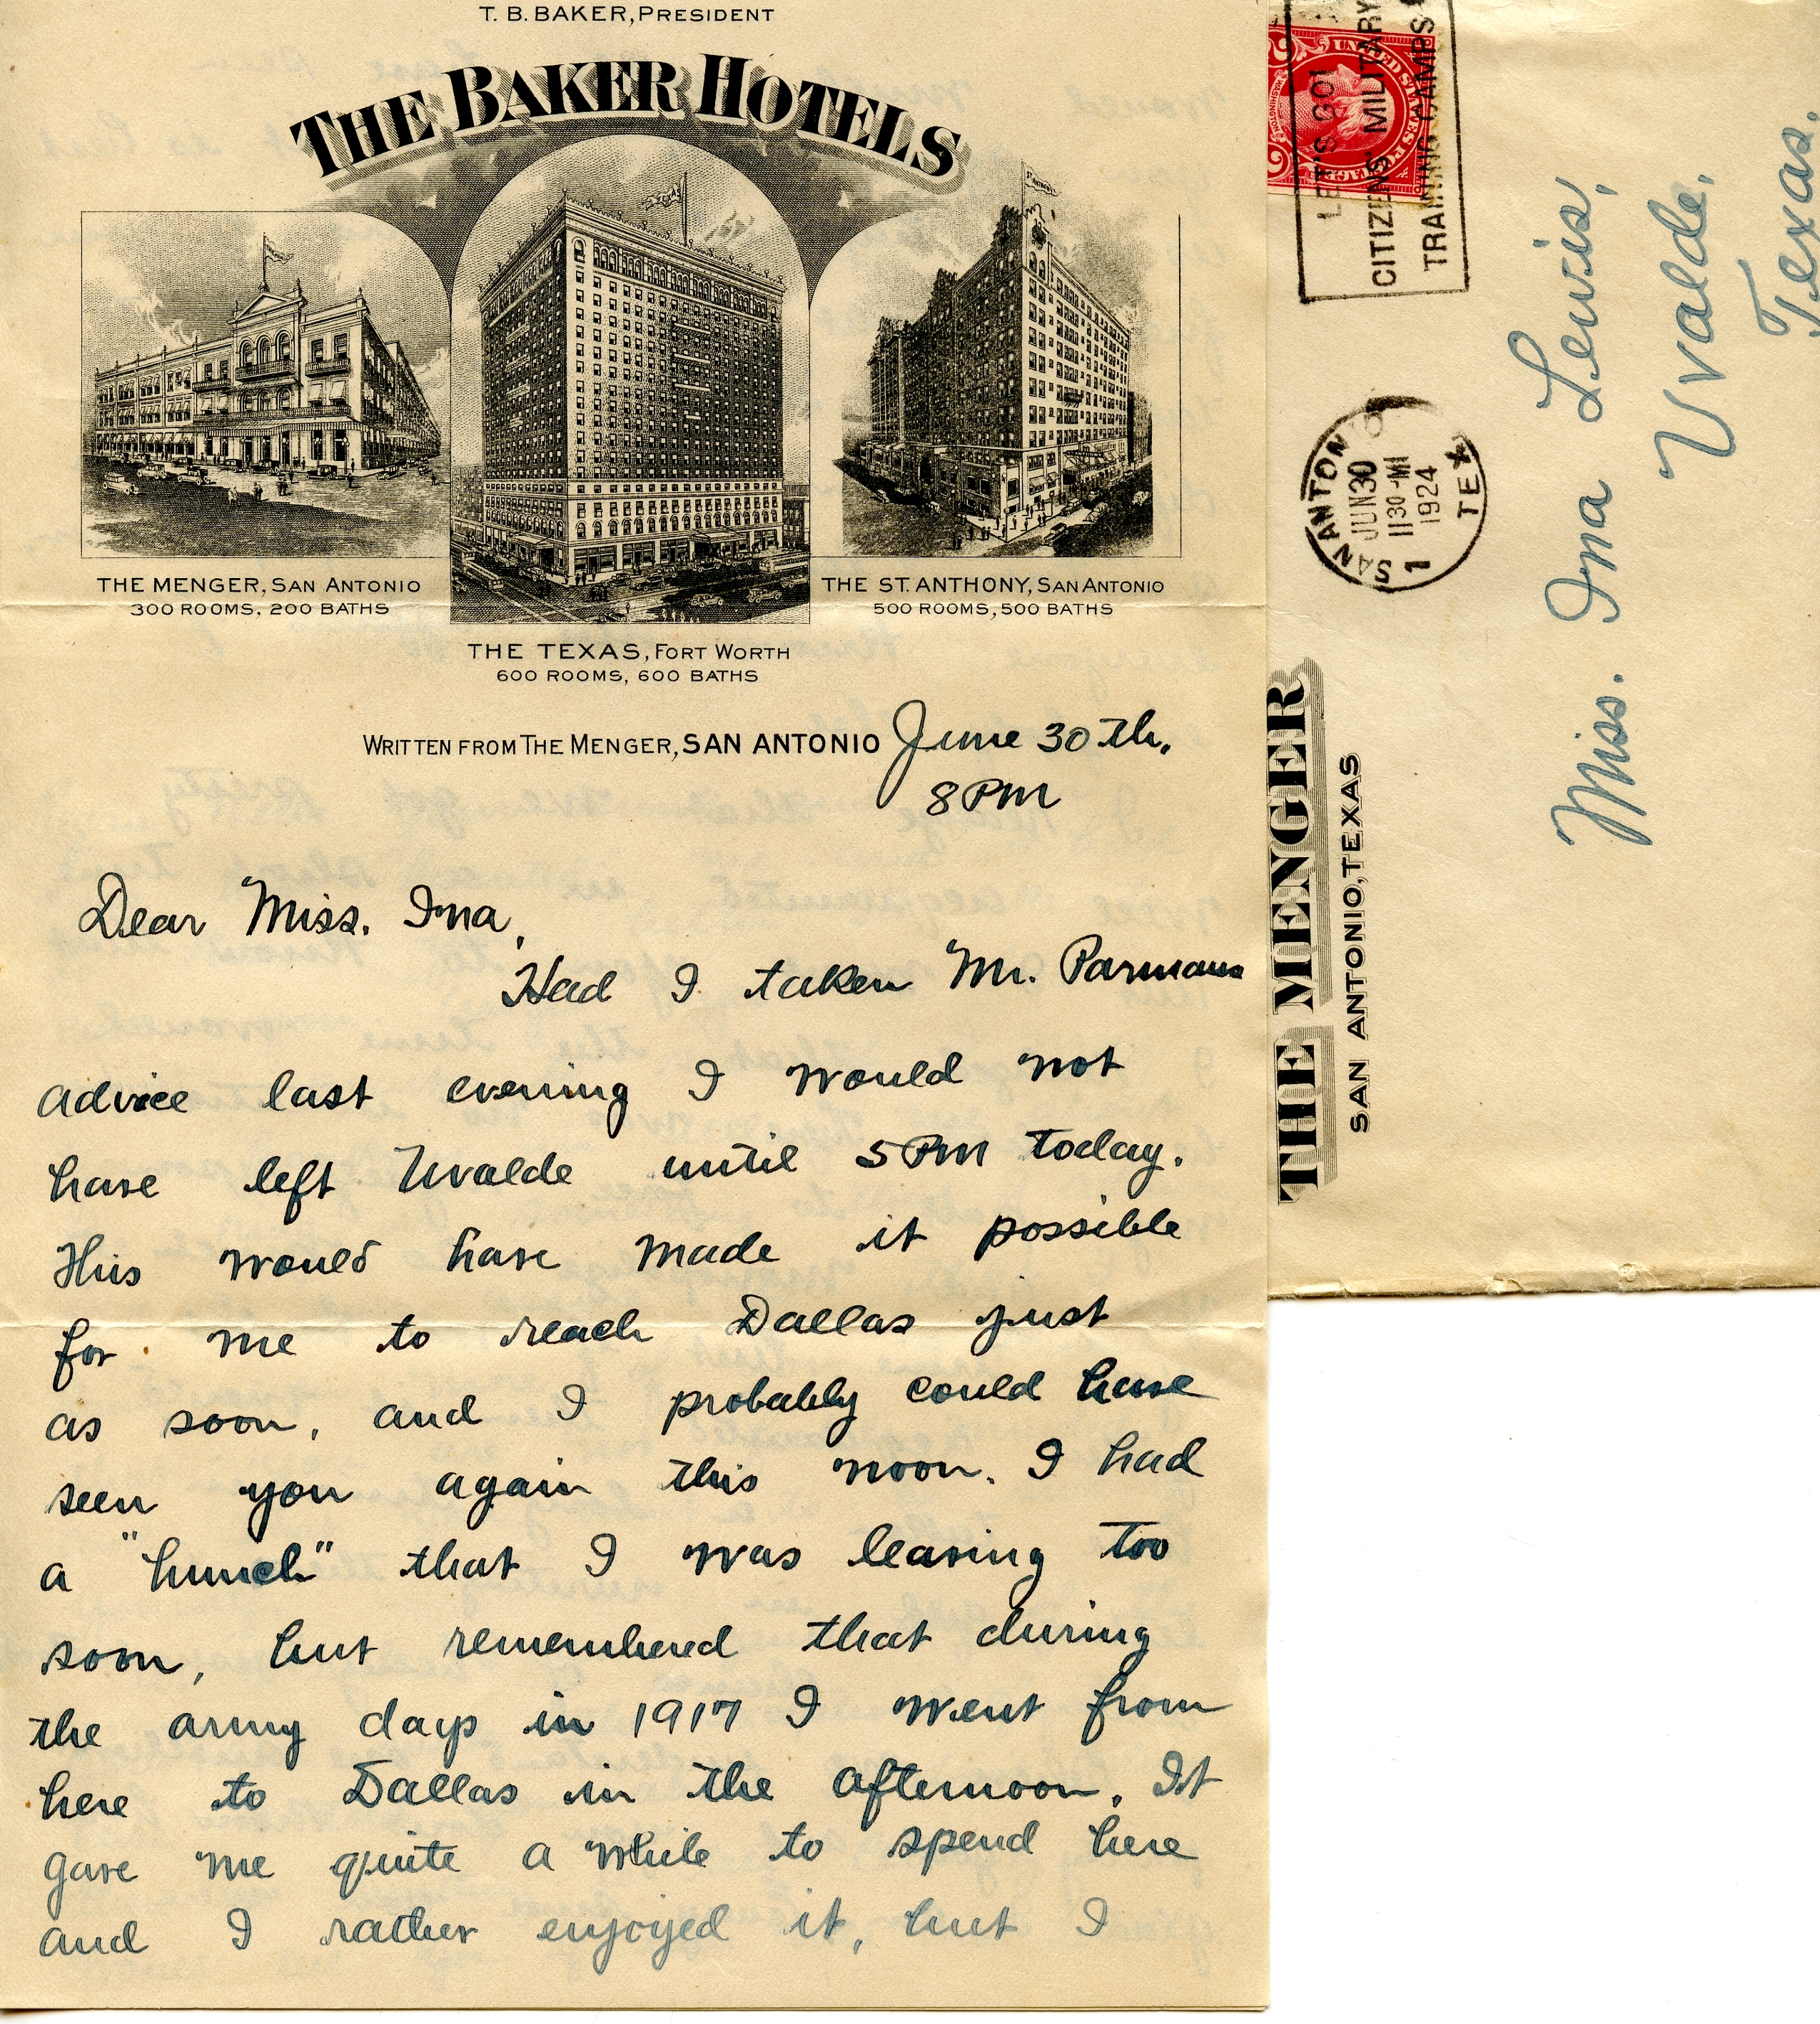 T. B. BAKER, PRESIDENT
THE BAKER HOTELS
THE MENGER, SAN ANTONIO
300 ROOMS, 200 BATHS
THE TEXAS, FORT WORTH
600 ROOMS, 600 BATHS
THE ST. ANTHONY, SAN ANTONIO
500 ROOMS, 500 BATHS
WRITTEN FROM THE MENGER, SAN ANTONIO June 30th.
8 PM
Dear Miss. Ina,
Had I taken Mr. Parmans
advice last evening I would not
have left Uvalde until 5 PM today.
This would have made it possible
for me to reach Dallas just
as soon, and I probably could have
seen you again this noon. I had
a "hunch" that I was leaving too
soon, but remembered that during
the army days in 1917 I went from
here to Dallas in the afternoon. It
gave me quite a while to spend here
and I rather enjoyed it, but I
THE MENGER
SAN ANTONIO, TEXAS
SAN ANTONIO
JUN 30
1130 - M
1924
1 TEX
LET'S GO!
CITIZENS' MILITARY
TRAINING CAMPS
UNITED STATES POSTAGE
WASHINGTON
2
Miss. Ina Lewis,
Uvalde,
Texas.